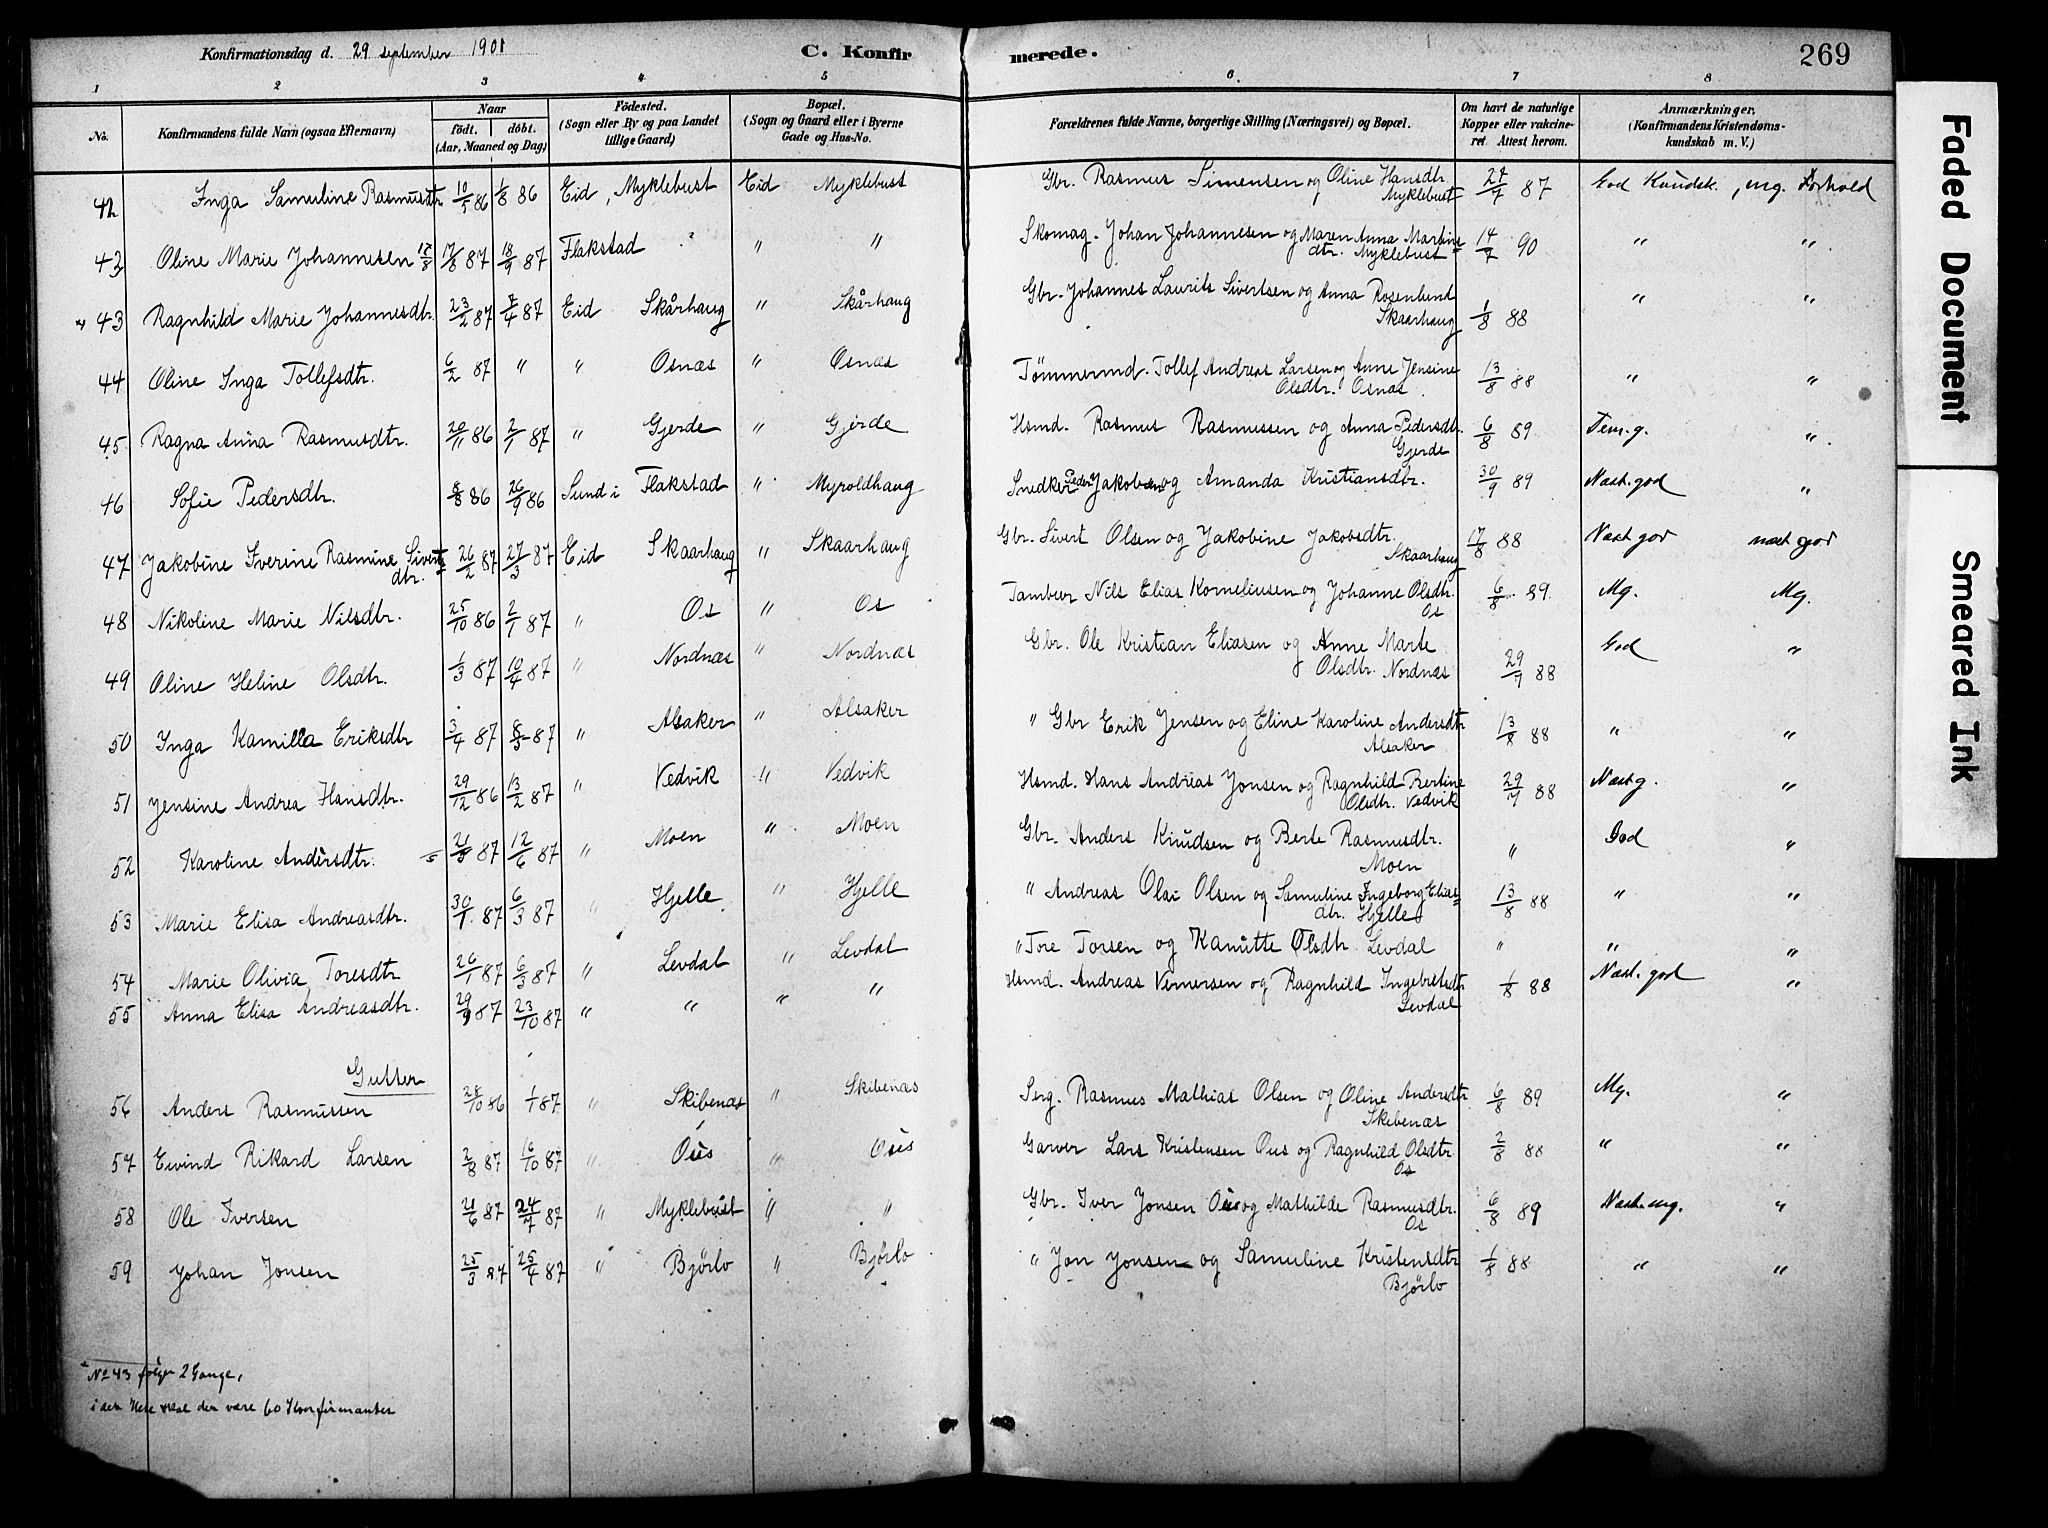 Konfirmationsdag d. 29 september 1901 C. Konfir merede. 269
1 2 3 4 5 6 7 8
No. Konfirmandens fulde Navn (ogsaa Efternavn) Naar födt. döbt. (Aar, Maaned og Dag) Födested. (Sogn eller By og paa Landet tillige Gaard) Bopæl. (Sogn og Gaard eller i Byerne Gade og Hus-No. Forældrenes fulde Navne, borgerlige Stilling (Næringsvei) og Bopæl. Om havt de naturlige Kopper eller vakcineret Attest herom. Anmærkninger, (Konfirmandens Kristendomskundskab m. V.)
42 Inga Samuline Rasmusdtr. 10/5 86 1/8 86 Eid, Myklebust Eid Myklebust Gbr. Rasmus Simensen og Oline Hansdtr Myklebust 27/7 87 God Kundsk., mg. Forhold
43 Oline Marie Johannesen 17/8 17/8 87 18/9 87 Flakstad " " " Skomag. Johan Johannesen og Maren Anna Martinedtr. Myklebust 14/7 90 " "
43 Ragnhild Marie Johannesdtr. 23/2 87 7/4 87 Eid Skårhaug " Skårhaug Gbr. Johannes Laurits Sivertsen og Anna Rosenlund Skaarhaug 1/8 88 " "
44 Oline Inga Tollefsdtr. 6/2 87 " " Osnæs " Osnæs Tømmermd. Tollef Andreas Larsen og Anne Jensine Olsdtr. Osnæs 13/8 88 " "
45 Ragna Anna Rasmusdtr. 20/11 86 2/1 87 " Gjerde " Gjerde Hsmd. Rasmus Rasmussen og Anna Pedersdtr. Gjerde 6/8 89 Tem. g. "
46 Sofie Pedersdtr. 8/8 86 26/9 86 Sund i Flakstad " Myroldhaug Snedker Peder Jakobsen og Amanda Kristiansdtr. 30/9 89 Næst. god "
47 Jakobine Iverine Rasmine Sivertsdtr. 26/2 87 27/3 87 Eid Skaarhaug " Skaarhaug Gbr. Sivert Olsen og Jakobine Jakobsdtr. Skaarhaug 17/8 88 Næst god næst god
48 Nikoline Marie Nilsdtr. 25/10 86 2/1 87 " Os " Os Tambur Nils Elias Korneliusen og Johanne Olsdtr. Os 6/8 89. Mg. Mg.
49 Oline Heline Olsdtr. 1/3 87 10/4 87 " Nordnæs " Nordnæs Gbr. Ole Kristian Eliasen og Anne Marte Olsdtr. Nordnæs 29/7 88 God "
50 Inga Kamilla Eriksdtr 3/4 87 8/5 87 " Alsaker " Alsaker " Gbr Erik Jensen og Eline Karoline Andersdtr Alsaker 13/8 88 " "
51 Jensine Andrea Hansdtr. 29/12 86 13/2 87 " Vedvik " Vedvik Hsmd. Hans Andreas Jonsen og Ragnhild Bertine Olsdtr. Vedvik 29/7 88 Næst g. "
52 Karoline Andersdtr. 21/5 87 12/6 87 " Moen " Moen Gbr. Anders Knudsen og Berte Rasmusdtr. Moen " God "
53 Marie Elisa Andreasdtr. 30/1 87 6/3 87 " Hjelle " Hjelle " Andreas Olai Olsen og Samuline Ingeborg Eliasdtr. Hjelle 13/8 88 " "
54 Marie Olivia Toresdtr 26/1 87 6/3 87 " Levdal " Levdal " Tore Torsen og Kanutte Olsdtr Levdal " " "
55 Anna Elisa Andreasdtr. 29/9 87 23/10 87 " " " " Hsmd. Andreas Vemersen og Ragnhild Ingebretsdtr Levdal 1/8 88 Næst. god "
Gutter
56 Anders Rasmussen 28/10 86 1/1 87 " Skibenæs " Skibenæs Serg. Rasmus Mathias Olsen og Oline Andersdtr Skibenæs 6/8 89 Mg. "
57 Eivind Rikard Larsen 2/8 87 16/10 87 " Ous " Ous Garver Lars Kristensen Ous og Ragnhild Olsdtr. Os 2/8 88 " "
58 Ole Iversen 21/6 87 24/7 87 " Myklebust " " Gbr. Iver Jonsen Ous og Mathilde Rasmusdtr. Os 6/8 89 Næst. mg. "
59 Johan Jonsen 25/3 87 25/4 87 " Bjørlo " Bjørlo " Jon Jonsen og Samuline Kristensdtr Bjørlo 1/8 88 " "
No 43 følger 2 Gange,
i det Hele skal der være 60 Konfirmanter
Faded Document
Smeared Ink